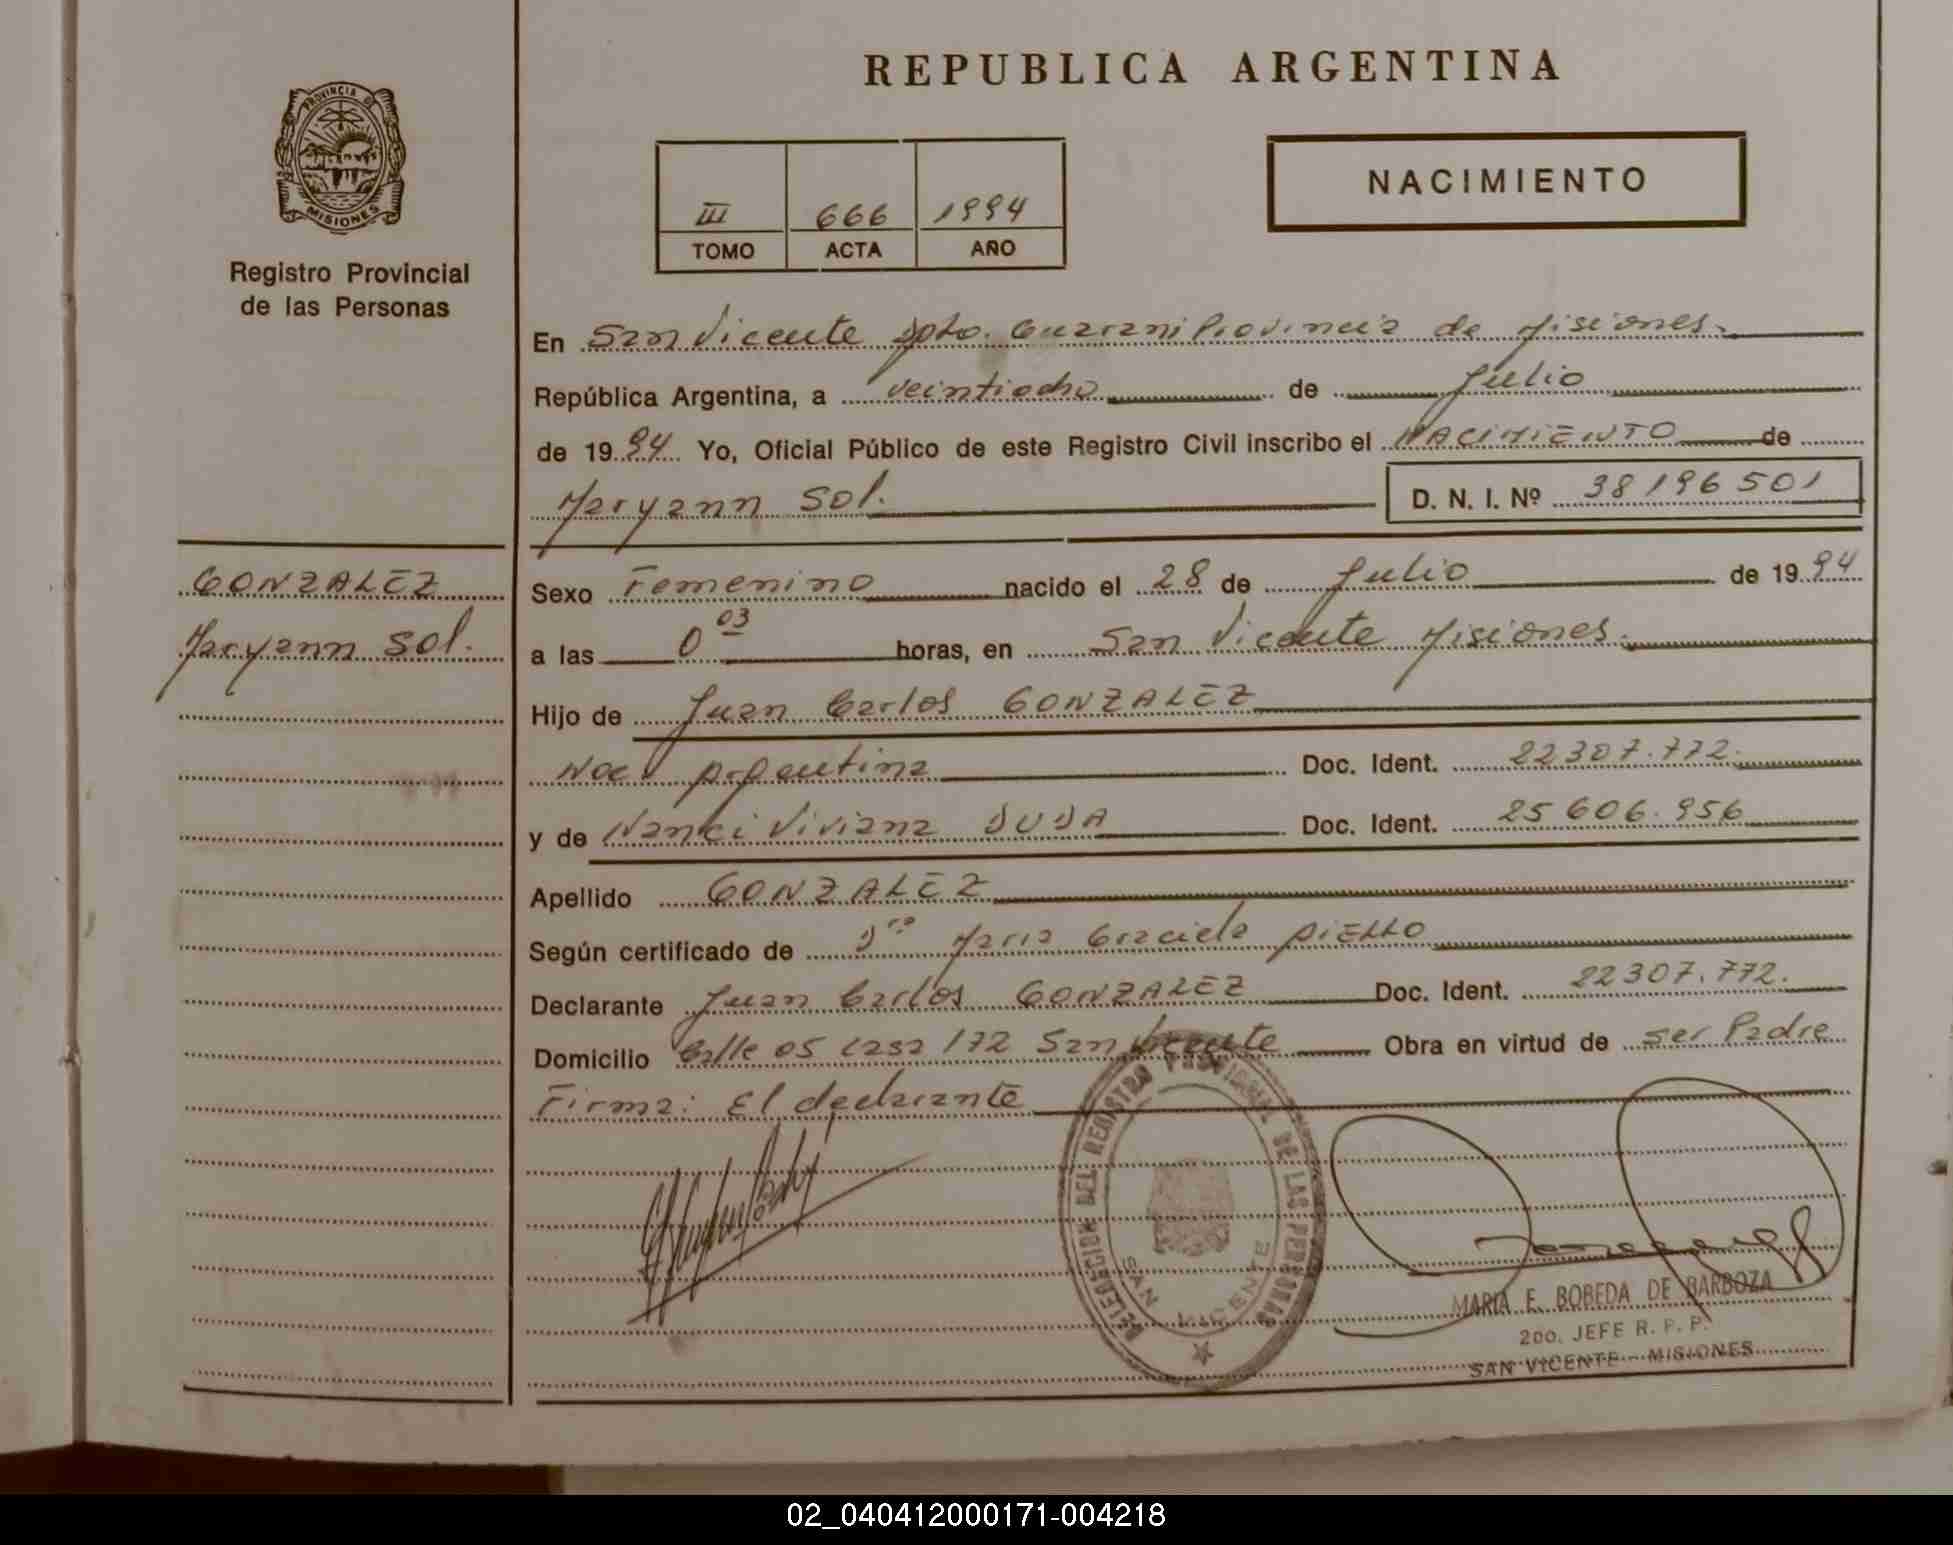 REPUBLICA ARGENTINA
PROVINCIA DE
MISIONES
Registro Provincial
de las Personas
III 666 1994
TOMO ACTA AÑO
NACIMIENTO
En San Vicente Dpto. Guarani Provincia de Misiones.
República Argentina, a veintiocho de Julio
de 1994 Yo, Oficial Público de este Registro Civil inscribo el NACIMIENTO de
Maryann Sol. D. N. I. Nº 38196501
GONZALEZ
Maryann Sol.
Sexo Femenino nacido el 28 de Julio de 1994
a las 0 03 horas, en San Vicente Misiones.
Hijo de Juan Carlos GONZALEZ
Nac Argentina Doc. Ident. 22307.772.
y de Nanci Viviana DUDA Doc. Ident. 25606.956
Apellido GONZALEZ
Según certificado de Dra Maria Graciela
Declarante Juan Carlos GONZALEZ Doc. Ident. 22307.772.
Domicilio Calle 05 casa 172 San Vicente Obra en virtud de ser Padre
Firma: El declarante
DELEGACION DEL REGISTRO PROVINCIAL DE LAS PERSONAS
SAN VICENTE
MARIA E. BOBEDA DE BARBOZA
2DO. JEFE R. P. P.
SAN VICENTE - MISIONES
02_040412000171-004218